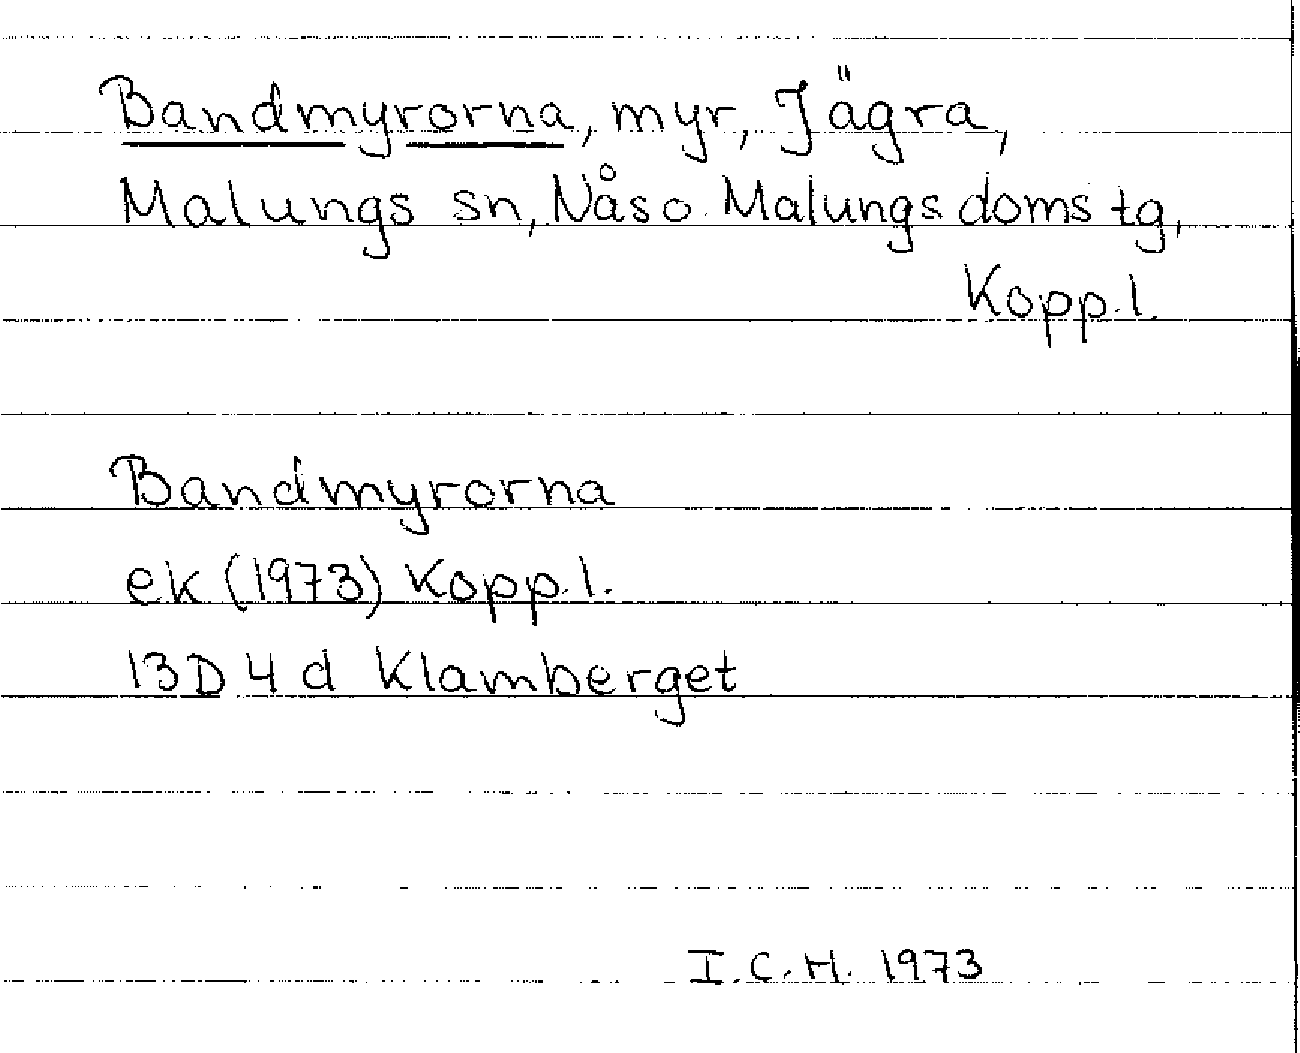 Bandmyrorna, myr, Jägra,
Malungs sn, Nås o. Malungs doms tg,
Kopp. l.
Bandmyrorna
ek (1973) Kopp. l.
13D 4 d Klamberget
I. C. H. 1973